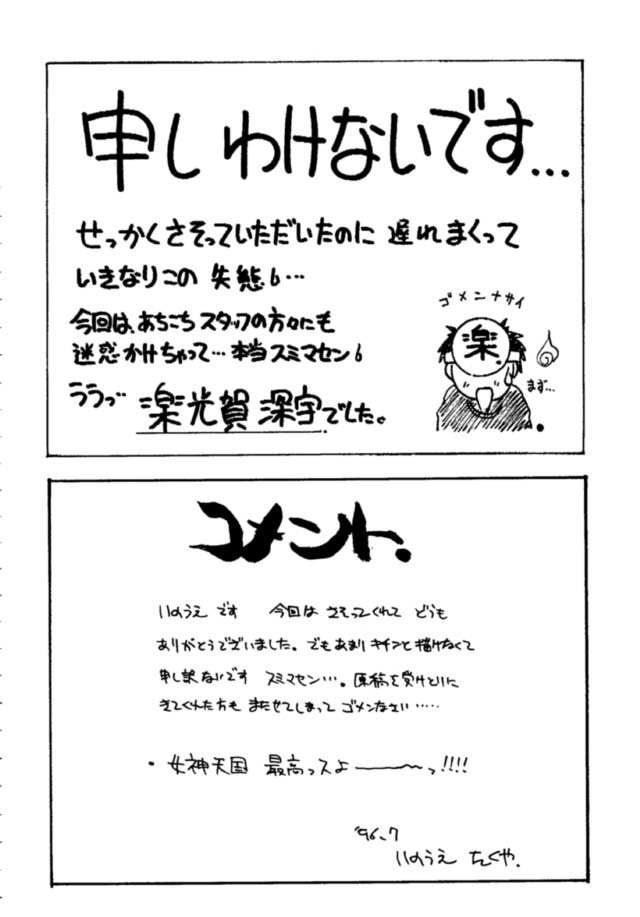 申しわけないです…
せっかくさそっていただいたのに 遅れまくって
いきなりこの 失態6…
今回は、あちこち スタッフの方々にも
迷惑かけちゃって…本当スミマセン6
ゴメンナサイ
楽
まず…
ララっ
楽光賀 深宇でした。
コメント.
いのうえ です 今回は さそってくれて どうも
ありがとうございました。でもあまり キチンと描けなくて
申し訳ないです スミマセン…。原稿を受けとりに
きてくれた方も またせてしまって ゴメンなさい……
・女神天国 最高っスよ――〜っ!!!!
'96.7
いのうえ たくや.